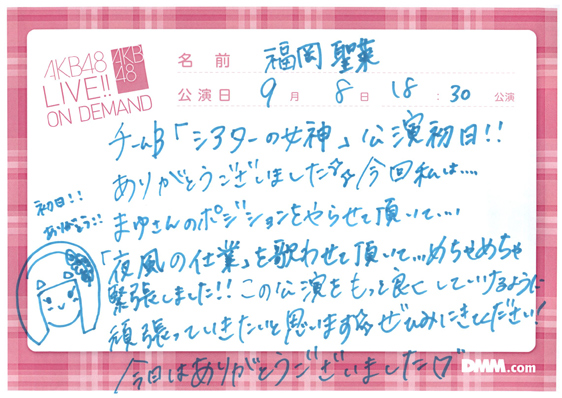 AKB48
LIVE!!
ON DEMAND
AKB
48
名前 福岡聖菜
公演日 9月8日 18:30公演
チームB「シアターの女神」公演初日!!
ありがとうございました☆☆今回私は....
まゆさんのポジションをやらせて頂いて...
「夜風の仕業」を歌わせて頂いて...めちゃめちゃ
緊張しました!!この公演をもっと良くしていけるように
頑張っていきたいと思います☆ぜひみにきてください!
今日はありがとうございました♡
初日!!
ありがとう!!
DMM.com